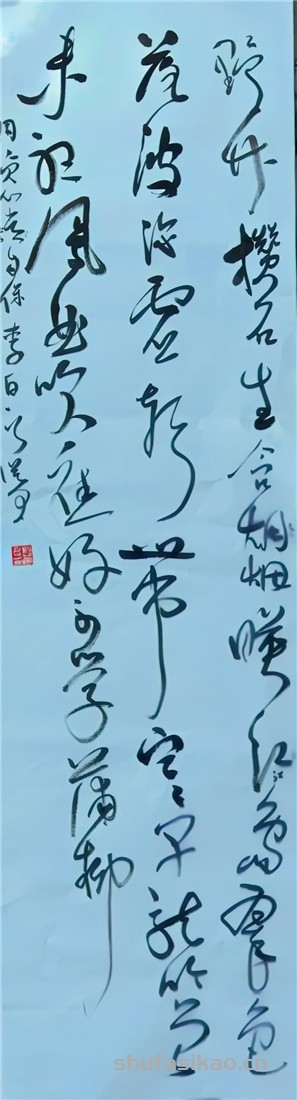 野竹攒石生含烟映江岛翠色
落波深虚声带寒早龙吟曾
未听凤曲吹应好不学蒲柳
凋贞心常自保 李白
shufasikao.cn